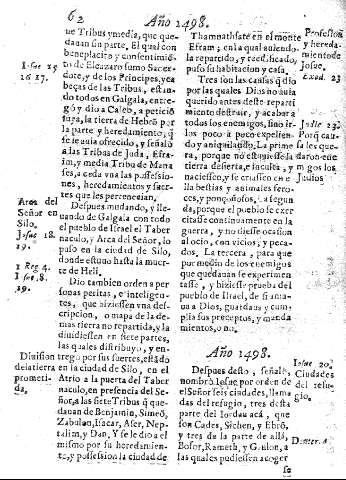 62
Año 1498.
ue Tribus y media, que que
dauan sin parte. El qual con
beneplacito y consentimiẽ
to de Eleazaro sumo Sacer
dote, y de los Principes, y ca
beças de las Tribus, estan-
do todos en Galgala, entre-
gò y dio a Caleb, a peticiõ
suya, la tierra de Hebrõ por
la parte y heredamiento, q̃
se le auia ofrecido, y señalò
a las Tribus de Iuda, Efra-
im, y media Tribu de Mana
ses, a cada vna las possessio-
nes, heredamientos y suer-
tes que les pertenecian.
Despues mudando, y lle-
uando de Galgala con todo
el pueblo de Israel el Taber
naculo, y Arca del Señor, lo
puso en la ciudad de Silo,
donde estuuo hasta la muer-
te de Heli.
Dio tambien orden a per
sonas peritas, e inteligen-
tes, que hiziessen vna des-
cripcion, o mapa de la de-
mas tierra no repartida, y la
diuidiessen en siete partes,
las quales distribuyo, y en-
trego por sus suertes, estãdo
en la ciudad de Silo, en el
Atrio a la puerta del Taber
naculo, en presencia del Se-
ñor, a las siete Tribus q̃ que-
dauan de Benjamin, Simeõ,
Zabulon, Isacar, Aser, Nep-
talim, y Dan, Y se le dio a el
mismo por su heredamien-
to, y possession la ciudad de
Iosue 19
16 17.
Arca del
Señor en
Silo.
Josue 18.
19.
1 Reg 4.
Iosue, 8.
19.
Diuision
de la tierra
prometi-
da.
Thamnathsare en el monte
Efraim; en la qual auiendo-
la repartido, y reedificado,
puso su habitacion y casa.
Tres son las causas q̃ dio
por las quales Dios no auia
querido antes deste reparti
miento destruir, y acabar a
todos los enemigos, sino ir-
los poco a poco expelien-
do y aniquilando. La prime
ra, porque no estuuiesse la
tierra desierta, e inculta, y
naciessen, y se criassen en e
lla bestias y animales fero-
ces, y ponçoñosos. La segun
da, porque el pueblo se exer
citasse continuamente en la
guerra, y no diesse ocasion
al ocio, con vicios, y peca-
dos. La tercera, para que
por medio de los enemigos
que quedauan se experimen
tasse, y hiziesse prueba del
pueblo de Israel, de si ama-
ua a Dios, guardaua y cum
plia sus preceptos, y manda
mientos, o no.
Profession
y hereda-
miento de
Josue.
Exod. 23
Judic 23.
Por q̃ cau-
sa les que-
daron ene
migos los
Judios
Año 1498.
Despues desto, señalò, y
nombrò Iosue, por orden de
el Señor seis ciudades, llama
das del refugio, tres desta
parte del Iordan acà, que
son Cades, Sichen, y Ebrõ,
y tres de la parte de allà,
Bosor, Rameth, y Gaulon, a
las quales pudiessen acoger
se
Iosue 20.
Ciudades
del refu-
gio.
Deuter. 4